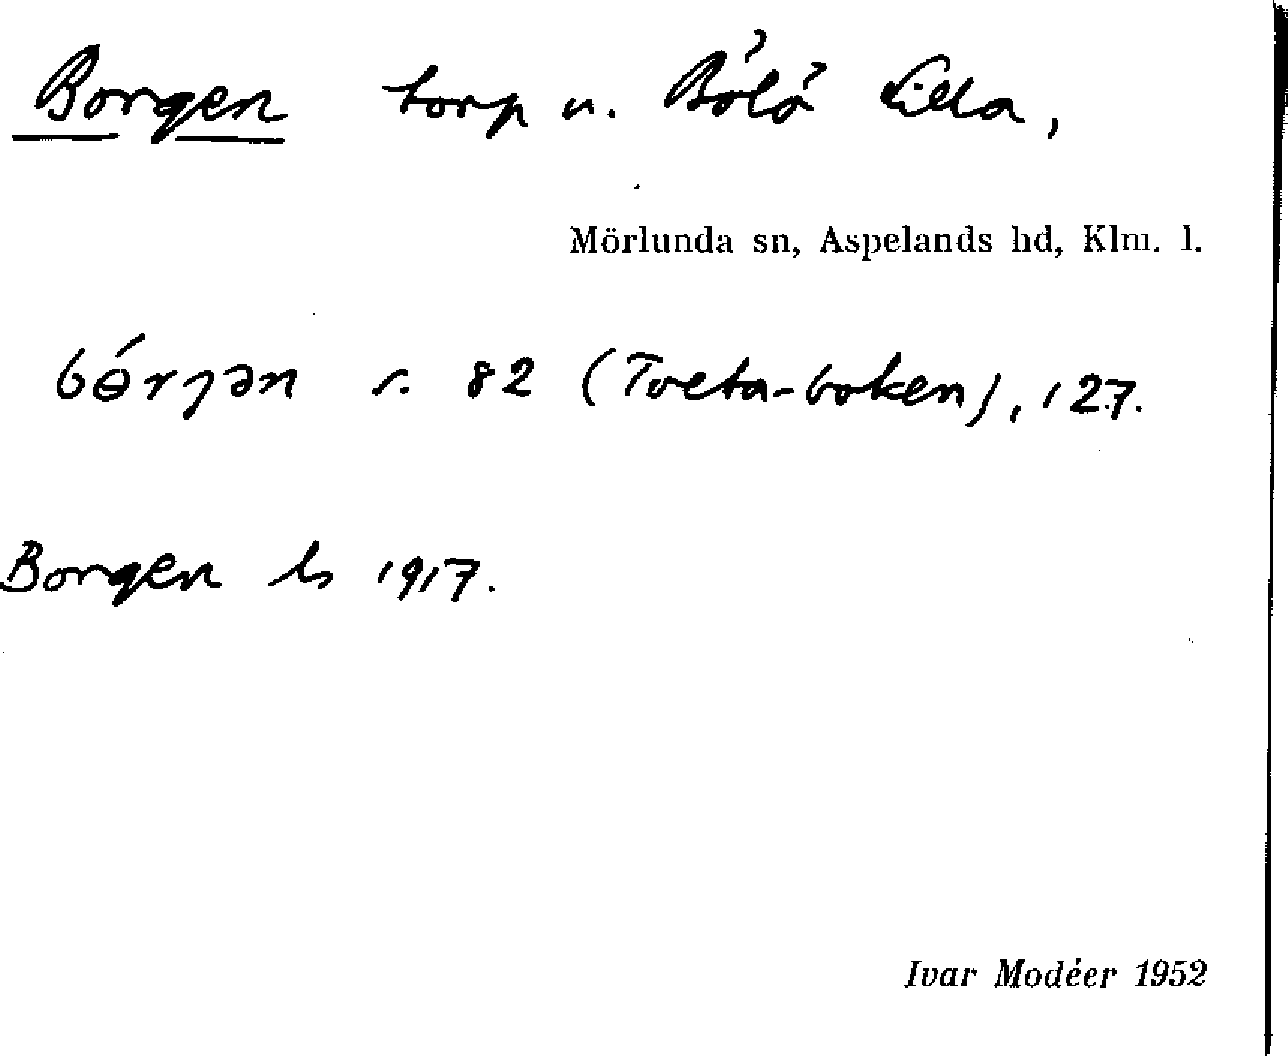 Borgen torp u. Bölö Lilla,
Mörlunda sn, Aspelands hd, Klm. l.
bɵ́rjən s. 82 (Tveta-boken), 127.
Borgen ls 1917.
Ivar Modéer 1952